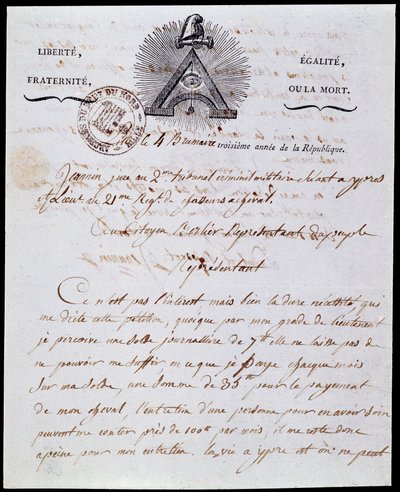 LIBERTÉ,
ÉGALITÉ,
FRATERNITÉ,
OU LA MORT.
ARCHIVES DU DEPT DU NORD
LILLE
le 4 Brumaire troisième année de la République.
juge au 2me tribunal criminel militaire séant a ypres
et Lieut. au 21me Regt. de chasseurs a cheval.
Au citoyen Berlier Representant du peuple
Représentant
Ce n'est pas l'interest mais bien la dure nécessité qui
me dicte cette petition, quoique par mon grade de lieutenant
je perçoive une solde journallière de 7tt elle ne laisse pas de
ne pouvoir me suffir en ce que je paye chacque mois
sur ma solde, une somme de 35tt pour le payement
de mon cheval, l'entretien d'une personne pour en avoir soin
peuvent me couter près de 100tt par mois, il me reste donc
apeine pour mon entretien. la vie a ypre est on ne peut